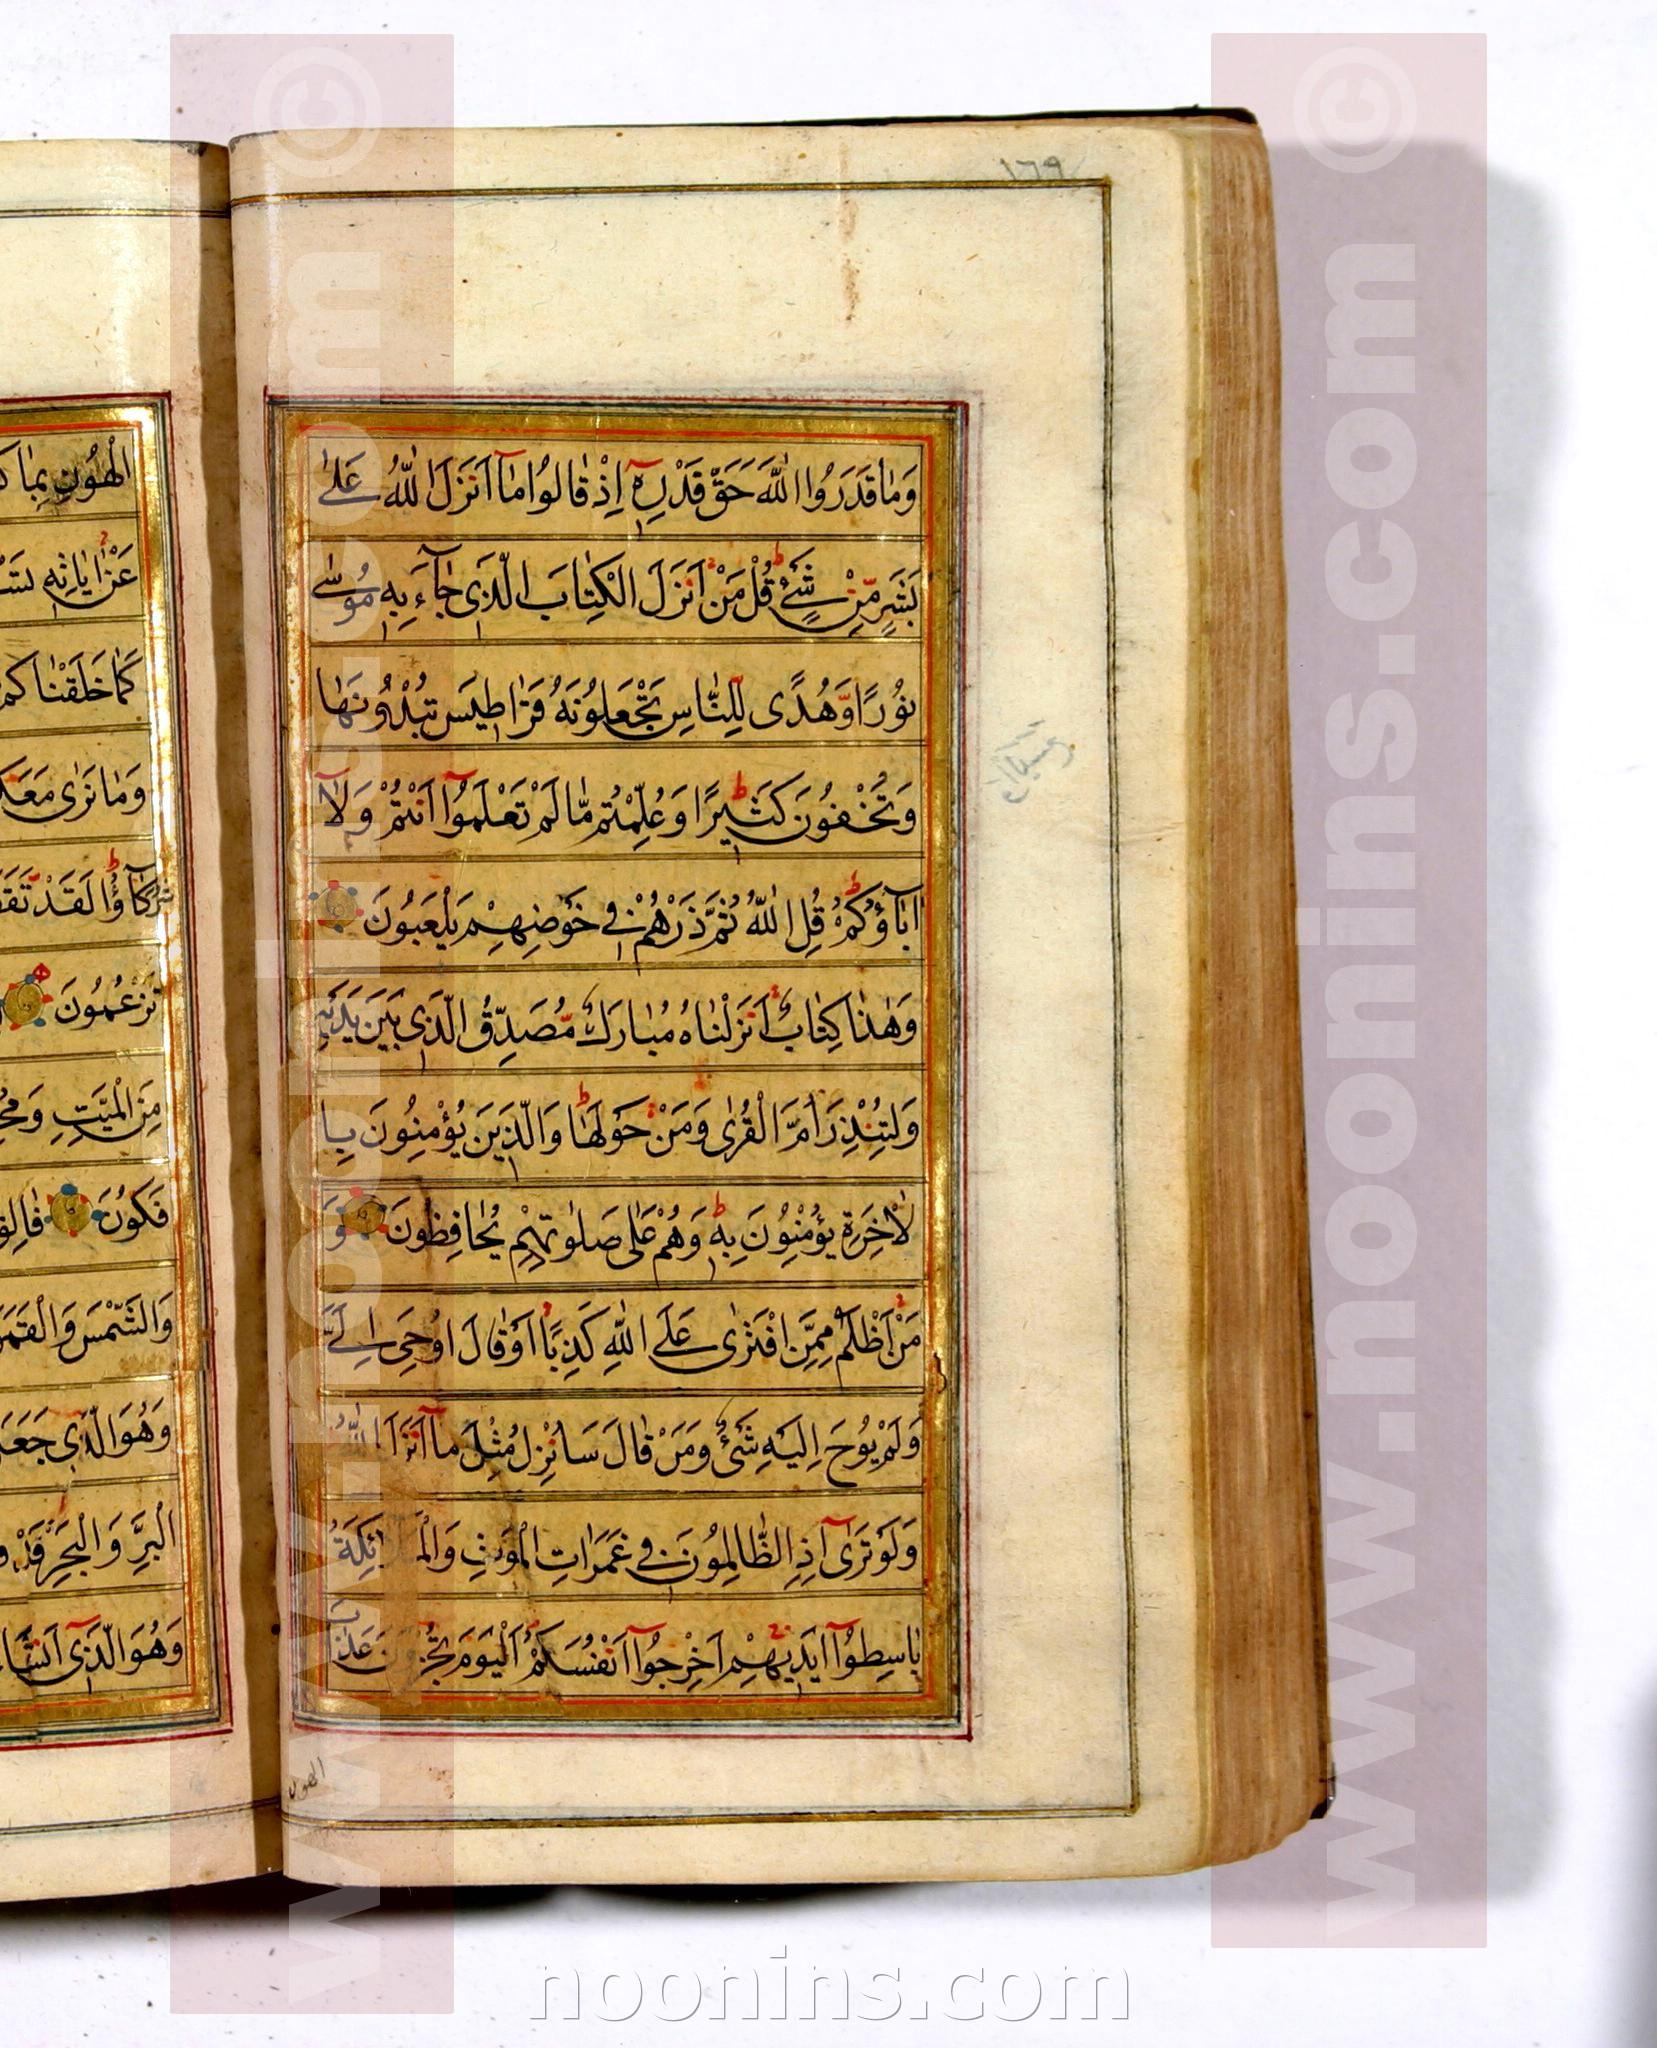 ١٦٩
وَمٰا قَدَرُوا اللّٰهَ حَقَّ قَدْرِهِٓ اِذْ قٰالُوا مٰٓا اَنْزَلَ اللّٰهُ عَلىٰ
بَشَرٍ مِّنْ شَيْءٍ ط قُلْ مَنْ اَنْزَلَ الْكِتٰابَ الَّذى جٰٓاءَ بِهِ مُوسىٰ
نُورًا وَّهُدًى لِلنّٰاسِ تَجْعَلُونَهُ قَرٰاطيسَ تُبْدُونَهٰا
وَتُخْفُونَ كَثيرًا ط وَعُلِّمْتُمْ مّٰا لَمْ تَعْلَمُٓوا اَنْتُمْ وَلٰٓا
اٰبٰٓاؤُكُمْ ط قُلِ اللّٰهُ ثُمَّ ذَرْهُمْ فى خَوْضِهِمْ يَلْعَبُونَ
وَهٰذٰا كِتٰابٌ اَنْزَلْنٰاهُ مُبٰارَكٌ مُّصَدِّقُ الَّذى بَيْنَ يَدَيْهِ
وَلِتُنْذِرَ اُمَّ الْقُرىٰ وَمَنْ حَوْلَهٰا ط وَالَّذينَ يُؤْمِنُونَ بِا
لْاٰخِرَةِ يُؤْمِنُونَ بِهِ ط وَهُمْ عَلىٰ صَلٰوتِهِمْ يُحٰافِظُونَ وَ
مَنْ اَظْلَمُ مِمَّنِ افْتَرىٰ عَلَى اللّٰهِ كَذِبًا اَوْ قٰالَ اُوحِىَ اِلَىَّ
وَلَمْ يُوحَ اِلَيْهِ شَىْءٌ وَمَنْ قٰالَ سَاُنْزِلُ مِثْلَ مٰٓا اَنْزَلَ اللّٰهُ
وَلَوْ تَرٰٓى اِذِ الظّٰالِمُونَ فى غَمَرٰاتِ الْمَوْتِ وَالْمَلٰٓائِكَةُ
بٰاسِطُٓوا اَيْديهِمْ اَخْرِجُٓوا اَنْفُسَكُمْ اَلْيَوْمَ تُجْزَوْنَ عَذٰابَ
الهون
الْهُونِ بِمٰا
عَنْ اٰيٰاتِهِ
كَمٰا خَلَقْنٰا
وَمٰا نَرىٰ
شُرَكٰٓاؤُا ط لَقَدْ
تَزْعُمُونَ
مِنَ الْمَيِّتِ
فَكُونَ
وَالشَّمْسَ وَالْقَمَرَ
وَهُوَ الَّذى جَعَلَ
الْبَرِّ وَالْبَحْرِ ط قَدْ
وَهُوَ الَّذٓى
www.noonins.com ©
www.noonins.com ©
noonins.com